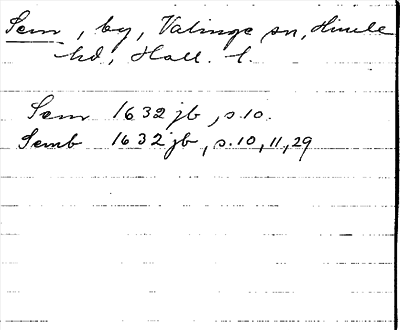 Sem, by, Valinge sn, Himle
hd, Hall. l.
Sem 1632 jb, s.10.
Semb 1632 jb, s.10, 11, 29